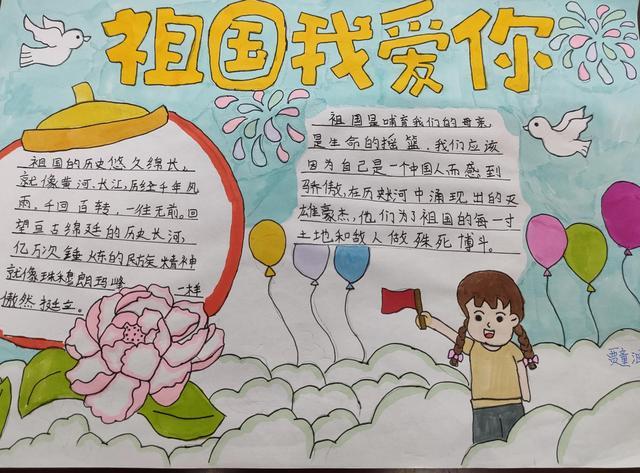 祖国我爱你
祖国的历史悠久绵长,
就像黄河、长江,历经千年风
雨,千回百转,一往无前。回
望亘古绵延的历史长河,
亿万次锤炼的民族精神
就像珠穆朗玛峰 一样
傲然挺立。
祖国是哺育我们的母亲,
是生命的摇篮,我们应该
因为自己是一个中国人而感到
骄傲,在历史河中涌现出的
雄豪杰,他们为了祖国的每一寸
土地和敌人做殊死博斗。
贾童